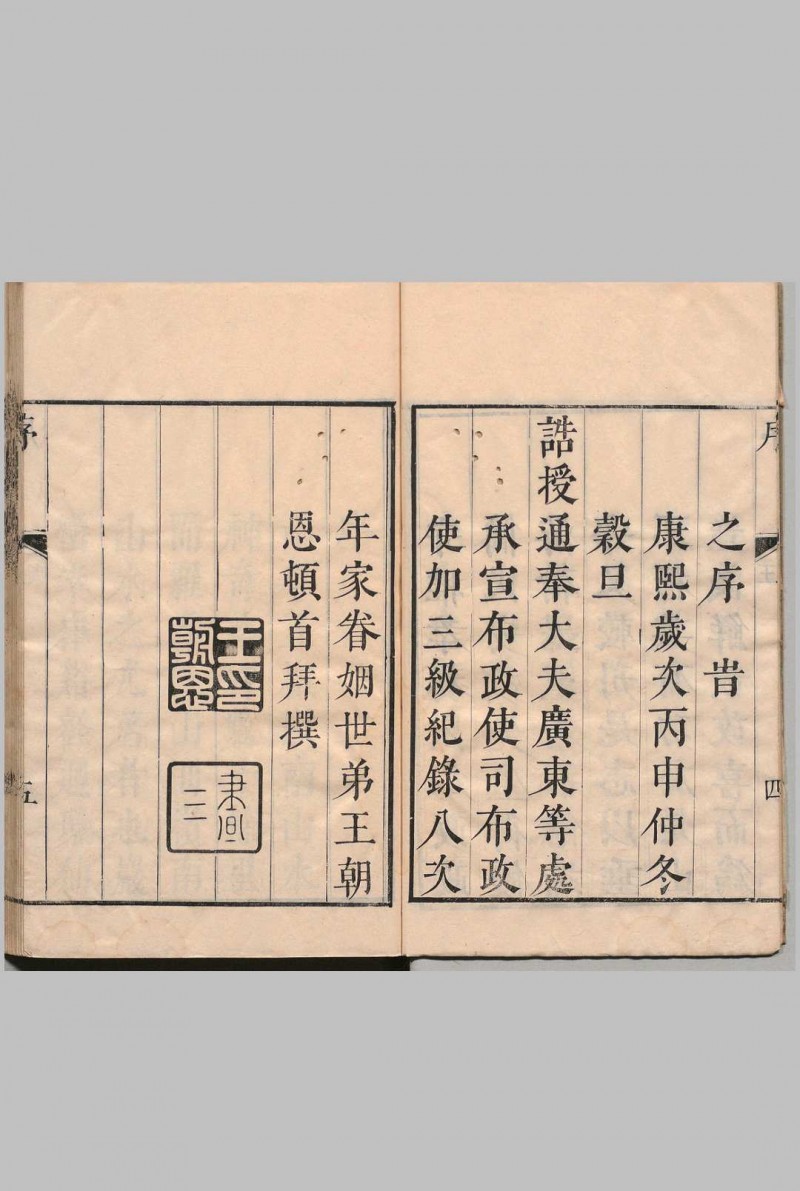 之序旹
康熙歲次丙申仲冬
穀旦
誥授通奉大夫廣東等處
承宣布政使司布政
使加三級紀錄八次
四
年家眷姻世弟王朝
恩頓首拜撰
王印
朝恩
序
五